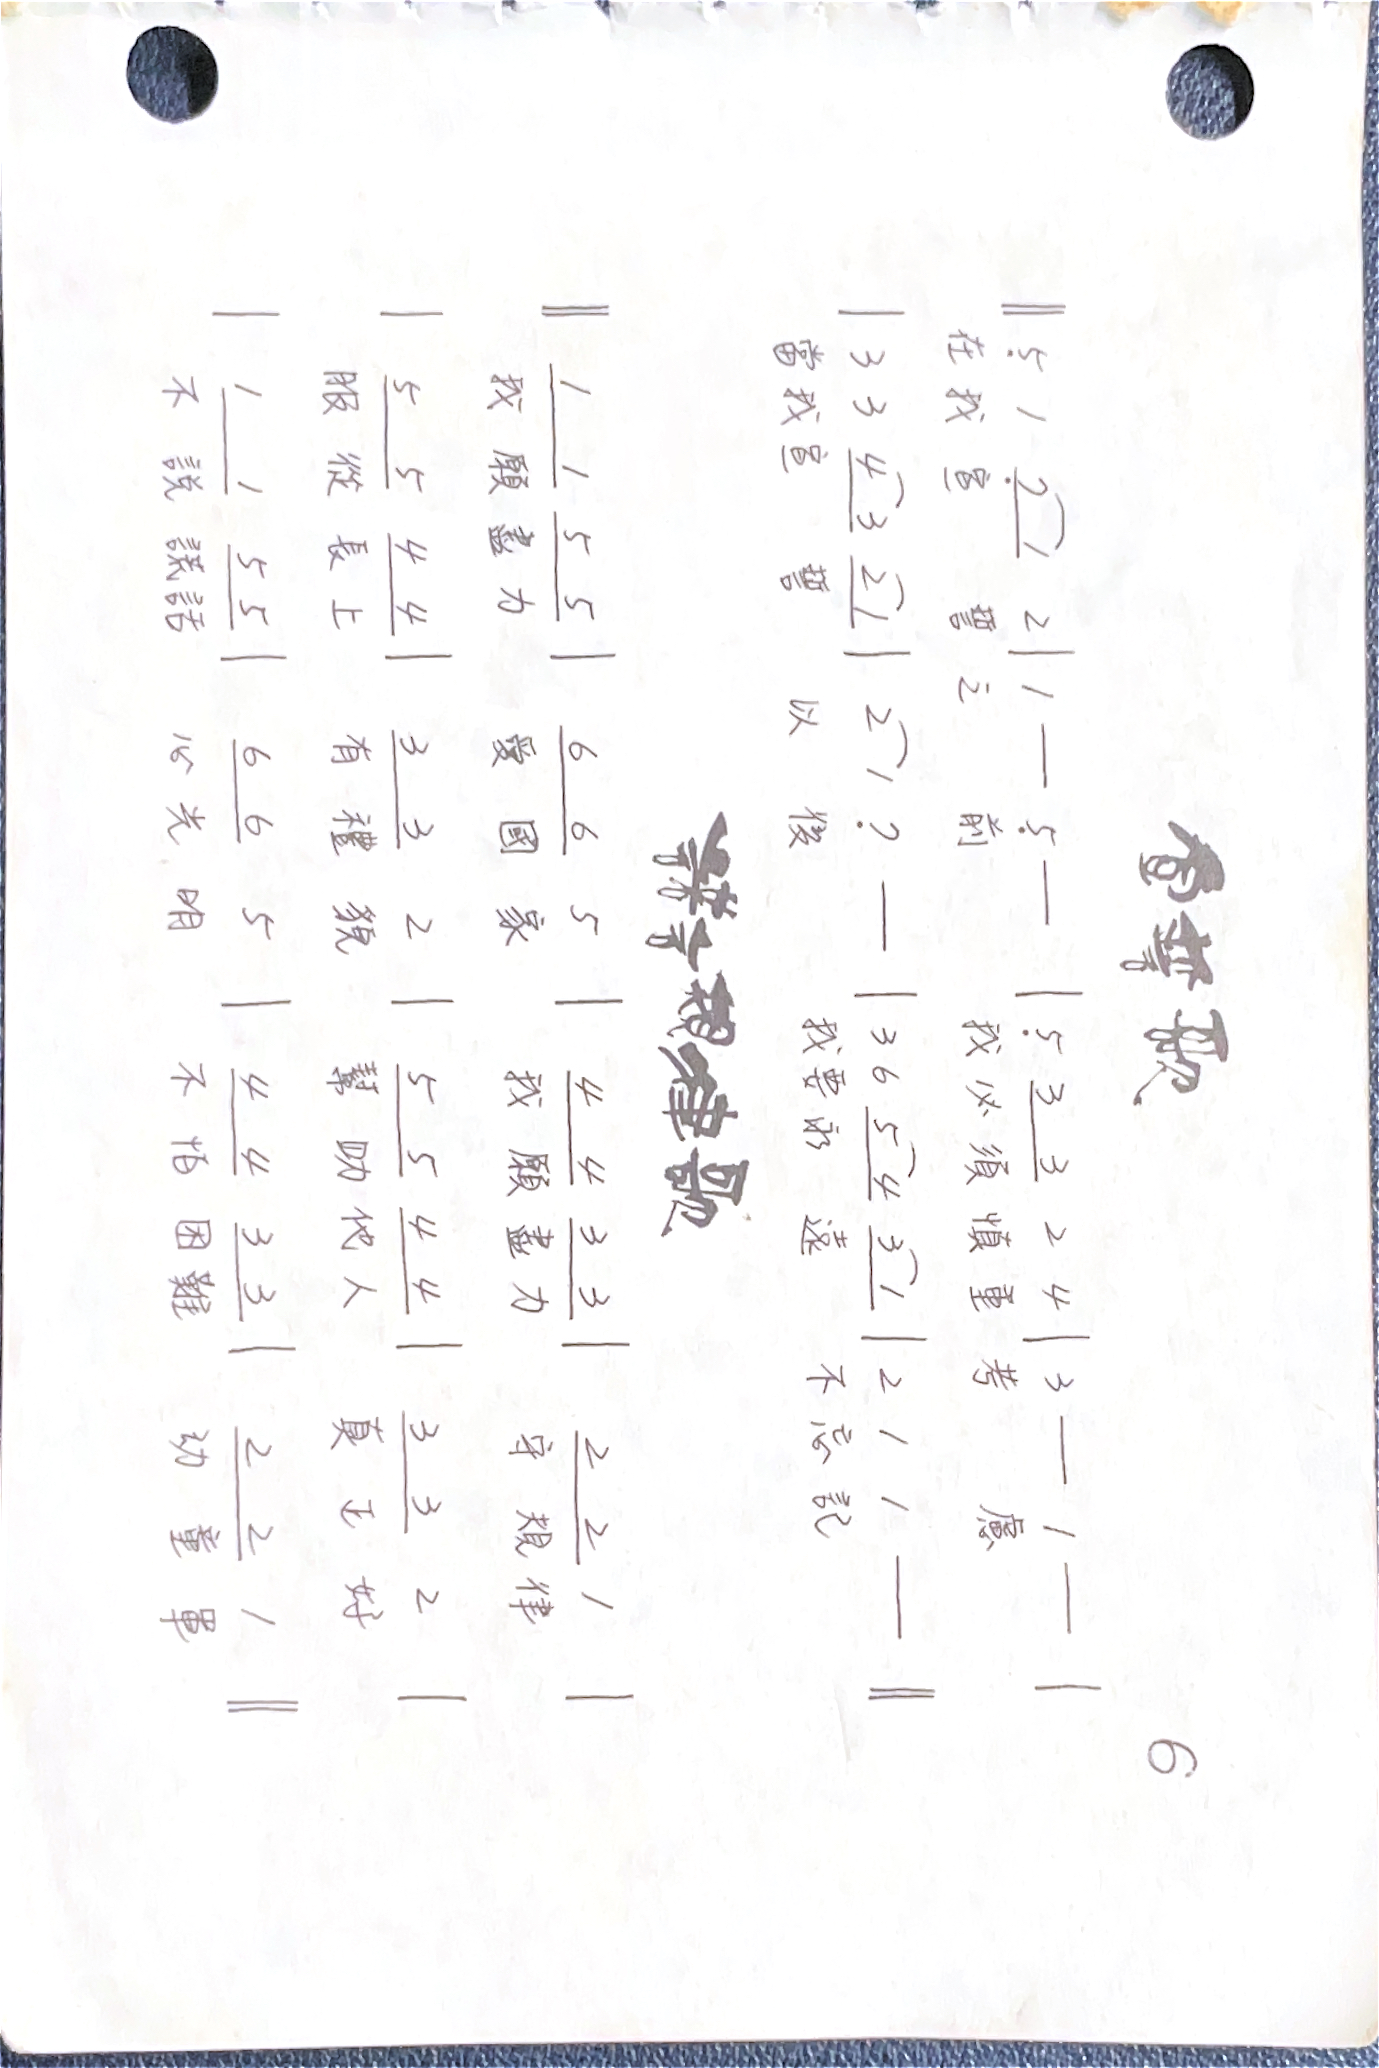 宣誓歌
6
‖ 5̣ 1 7̣ 1 2 | 1 — 5̣ — | 5̣ 3 3 2 4 | 3 — 1 — |
在我宣 誓之 前 我必須慎重考 慮
| 3 3 4 3 2 1 | 2 1 7̣ — | 3 6 5 4 3 1 | 2 1 1 — ‖
當我宣 誓 以 後 我要永 遠 不忘記
規律歌
‖ 1 1 5 5 | 6 6 5 | 4 4 3 3 | 2 2 1 |
我願盡力 愛國家 我願盡力 守規律
| 5 5 4 4 | 3 3 2 | 5 5 4 4 | 3 3 2 |
服從長上 有禮貌 幫助他人 真正好
| 1 1 5 5 | 6 6 5 | 4 4 3 3 | 2 2 1 ‖
不說謊話 心光明 不怕困難 幼童軍